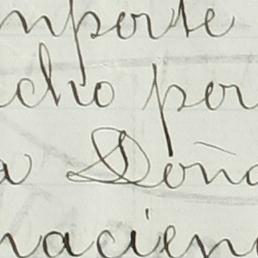 mporte
cho por
a Doña
nacien